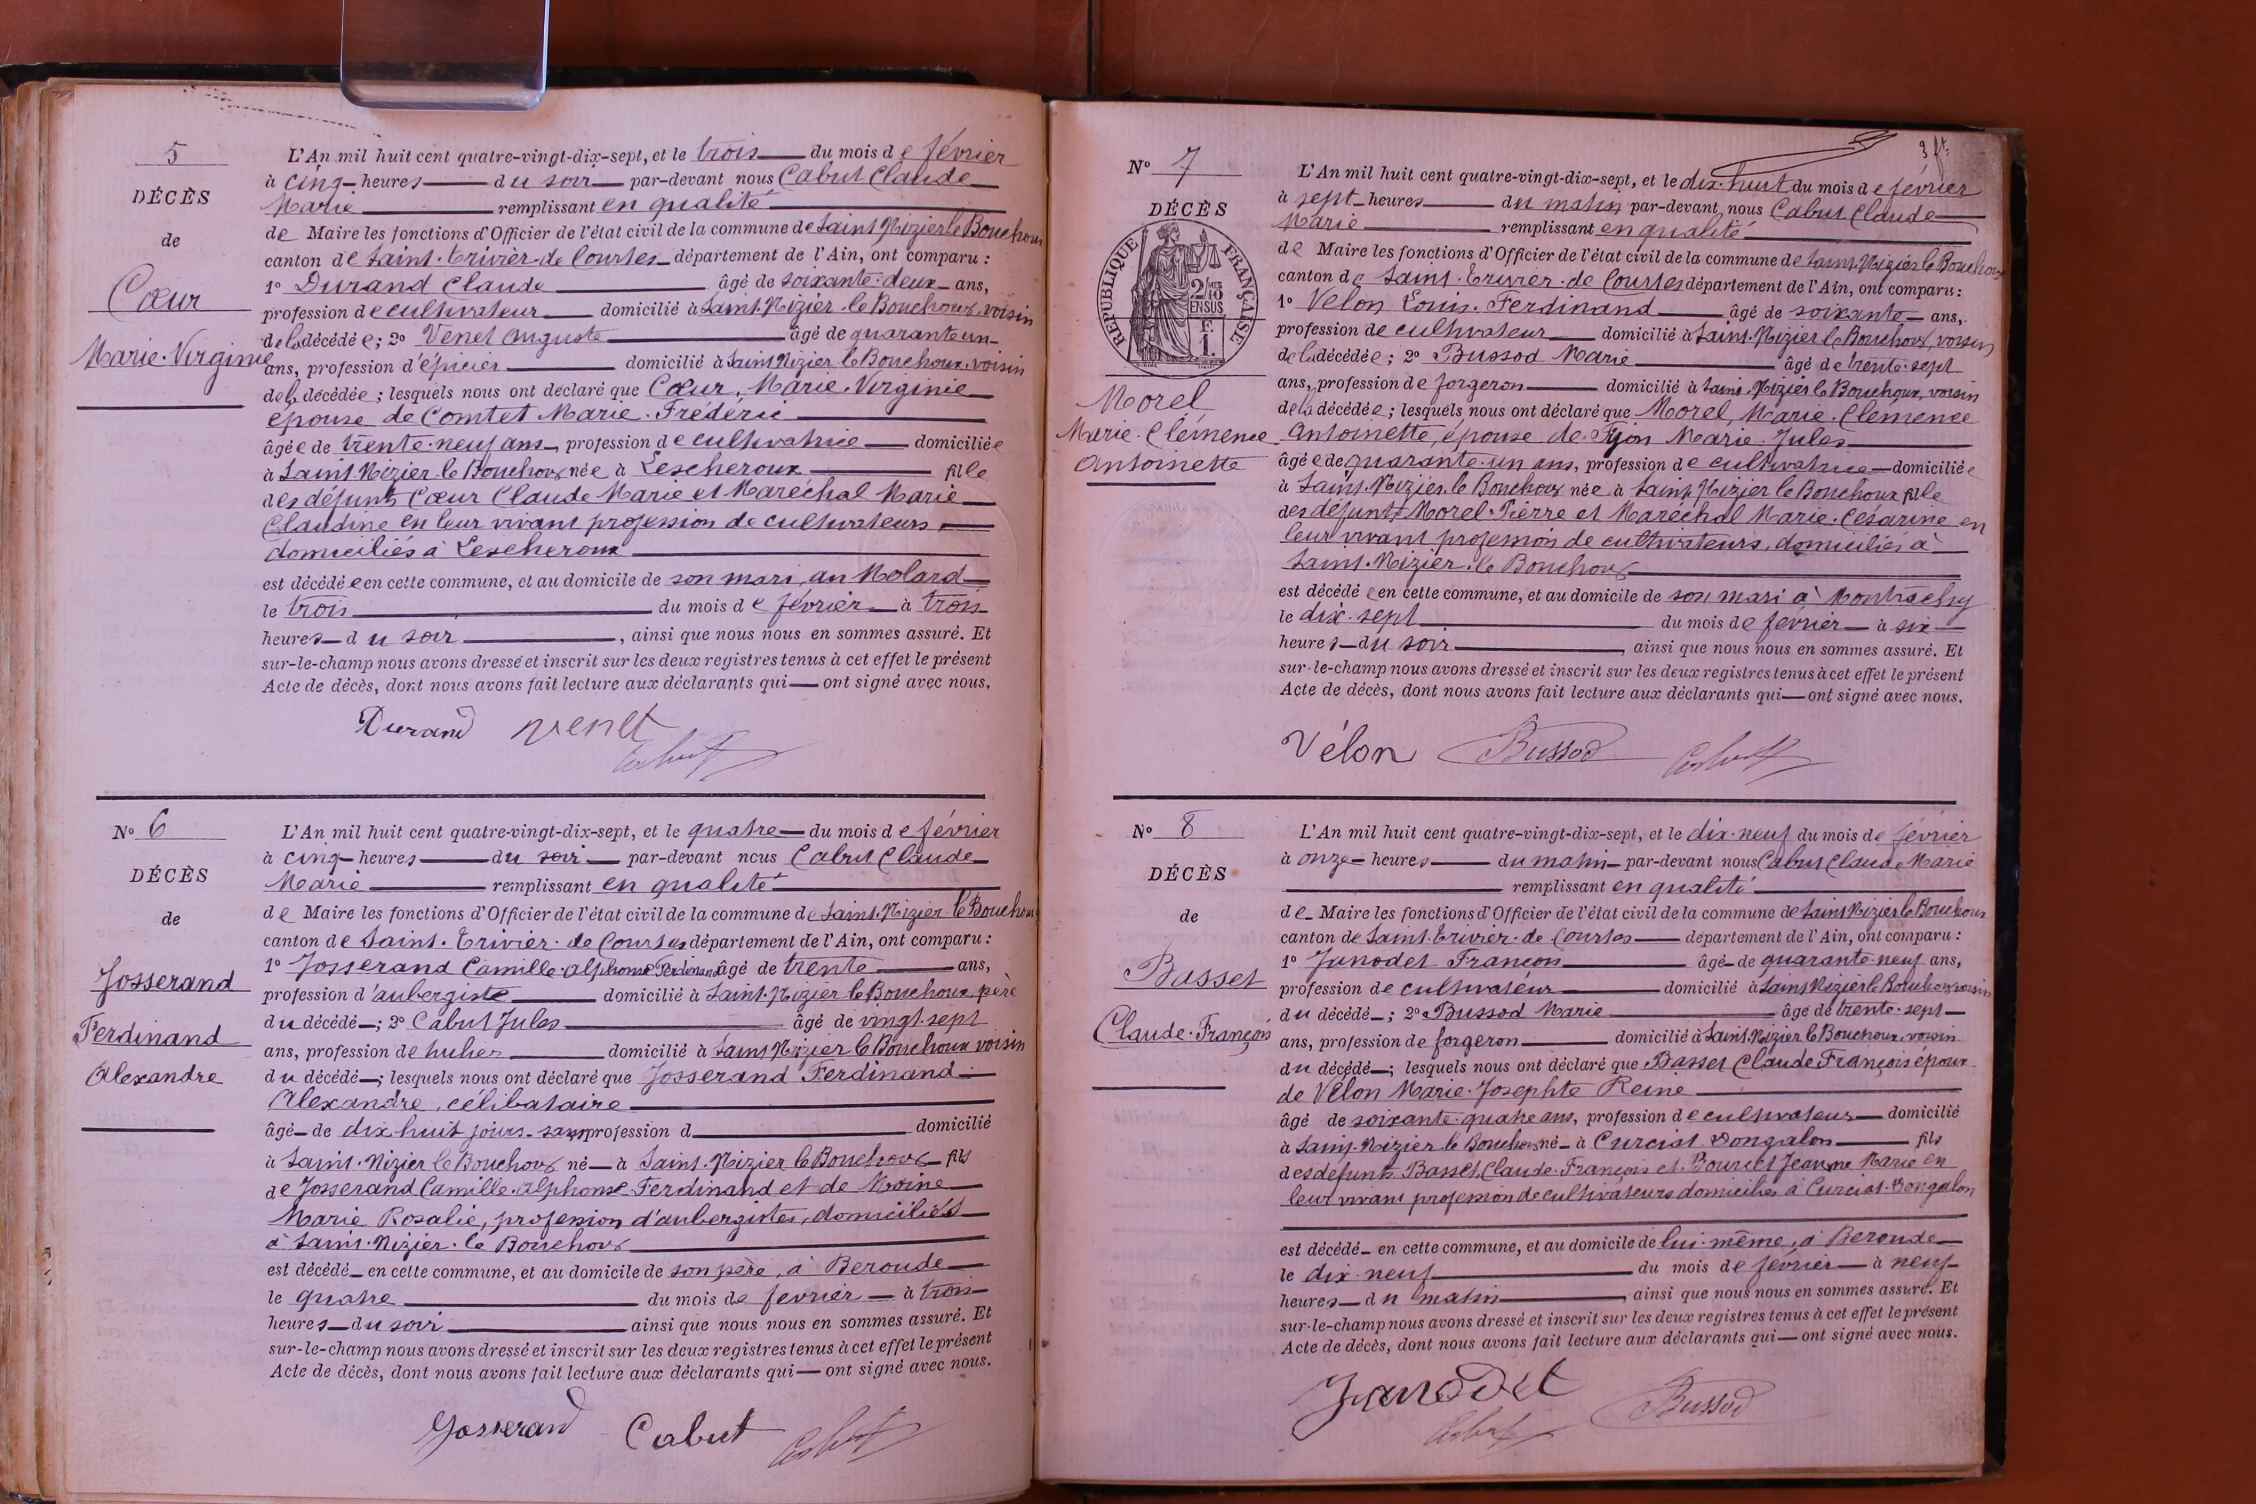 5
DÉCÈS
de
Cœur
Marie-Virginie
L'An mil huit cent quatre-vingt-dix-sept, et le trois du mois de février
à cinq heures du soir par-devant nous Cabut Claude
Marie remplissant en qualité
de Maire les fonctions d'Officier de l'état civil de la commune de Saint-Nizier le Bouchoux
canton de Saint-Trivier-de Courtes département de l'Ain, ont comparu :
1° Durand Claude âgé de soixante-deux ans,
profession de cultivateur domicilié à Saint-Nizier-le Bouchoux, voisin
de la décédée ; 2° Venet Auguste âgé de quarante un
ans, profession d'épicier domicilié à Saint Nizier le Bouchoux, voisin
de la décédée ; lesquels nous ont déclaré que Cœur, Marie-Virginie
épouse de Comtet Marie-Frédéric
âgée de trente-neuf ans, profession de cultivatrice domiciliée
à Saint Nizier le Bouchoux née à Lescheroux fille
des défunts Cœur Claude Marie et Maréchal Marie
Claudine en leur vivant profession de cultivateurs
domiciliés à Lescheroux
est décédée en cette commune, et au domicile de son mari, au Molard
le trois du mois de février à trois
heures du soir, ainsi que nous nous en sommes assuré. Et
sur-le-champ nous avons dressé et inscrit sur les deux registres tenus à cet effet le présent
Acte de décès, dont nous avons fait lecture aux déclarants qui ont signé avec nous.
Durand Venet Cabut
N° 6
DÉCÈS
de
Josserand
Ferdinand
Alexandre
L'An mil huit cent quatre-vingt-dix-sept, et le quatre du mois de février
à cinq heures du soir par-devant nous Cabut Claude
Marie remplissant en qualité
de Maire les fonctions d'Officier de l'état civil de la commune de Saint-Nizier le Bouchoux
canton de Saint-Trivier-de Courtes département de l'Ain, ont comparu :
1° Josserand Camille-Alphonse Ferdinand âgé de trente ans,
profession d'aubergiste domicilié à Saint-Nizier le Bouchoux, père
du décédé ; 2° Cabut Jules âgé de vingt-sept
ans, profession de huilier domicilié à Saint Nizier le Bouchoux voisin
du décédé ; lesquels nous ont déclaré que Josserand Ferdinand
Alexandre, célibataire
âgé de dix huit jours sans profession d domicilié
à Saint-Nizier le Bouchoux né à Saint-Nizier le Bouchoux fils
de Josserand Camille-Alphonse-Ferdinand et de Moine
Marie Rosalie, profession d'aubergistes, domiciliés
à Saint-Nizier-le Bouchoux
est décédé en cette commune, et au domicile de son père, à Beroude
le quatre du mois de février à trois
heures du soir ainsi que nous nous en sommes assuré. Et
sur-le-champ nous avons dressé et inscrit sur les deux registres tenus à cet effet le présent
Acte de décès, dont nous avons fait lecture aux déclarants qui ont signé avec nous.
Josserand Cabut Cabut
N° 7
DÉCÈS
RÉPUBLIQUE FRANÇAISE
2/10
EN SUS
1 F.
Morel
Marie-Clémence
Antoinette
L'An mil huit cent quatre-vingt-dix-sept, et le dix-huit du mois de février
à sept heures du matin par-devant nous Cabut Claude
Marie remplissant en qualité
de Maire les fonctions d'Officier de l'état civil de la commune de Saint-Nizier le Bouchoux
canton de Saint-Trivier-de Courtes département de l'Ain, ont comparu :
1° Vélon Louis-Ferdinand âgé de soixante ans,
profession de cultivateur domicilié à Saint-Nizier le Bouchoux, voisin
de la décédée ; 2° Bussod Marie âgé de trente-sept
ans, profession de forgeron domicilié à Saint-Nizier le Bouchoux, voisin
de la décédée ; lesquels nous ont déclaré que Morel, Marie-Clémence
Antoinette, épouse de Marie-Jules
âgée de quarante-un ans, profession de cultivatrice domiciliée
à Saint-Nizier-le Bouchoux née à Saint-Nizier le Bouchoux fille
des défunts Morel-Pierre et Maréchal Marie-Césarine en
leur vivant profession de cultivateurs, domiciliés à
Saint-Nizier-le Bouchoux
est décédée en cette commune, et au domicile de son mari à Montrachy
le dix-sept du mois de février à six
heures du soir, ainsi que nous nous en sommes assuré. Et
sur-le-champ nous avons dressé et inscrit sur les deux registres tenus à cet effet le présent
Acte de décès, dont nous avons fait lecture aux déclarants qui ont signé avec nous.
Vélon Bussod Cabut
N° 8
DÉCÈS
de
Basset
Claude-François
L'An mil huit cent quatre-vingt-dix-sept, et le dix-neuf du mois de février
à onze heures du matin par-devant nous Cabut Claude Marie
remplissant en qualité
de Maire les fonctions d'Officier de l'état civil de la commune de Saint Nizier le Bouchoux
canton de Saint-Trivier-de Courtes département de l'Ain, ont comparu :
1° Junodet Françon âgé de quarante-neuf ans,
profession de cultivateur domicilié à Saint Nizier le Bouchoux, voisin
du décédé ; 2° Bussod Marie âgé de trente-sept
ans, profession de forgeron domicilié à Saint-Nizier le Bouchoux, voisin
du décédé ; lesquels nous ont déclaré que Basset Claude François époux
de Vélon Marie-Josephte Reine
âgé de soixante-quatre ans, profession de cultivateur domicilié
à Saint-Nizier-le Bouchoux né à Curciat Dongalon fils
des défunts Basset, Claude-François et Jeanne Marie en
leur vivant profession de cultivateurs domiciliés à Curciat-Dongalon
est décédé en cette commune, et au domicile de lui-même, à Beroude
le dix-neuf du mois de février à neuf
heures du matin, ainsi que nous nous en sommes assuré. Et
sur-le-champ nous avons dressé et inscrit sur les deux registres tenus à cet effet le présent
Acte de décès, dont nous avons fait lecture aux déclarants qui ont signé avec nous.
Junodet Bussod
Cabut